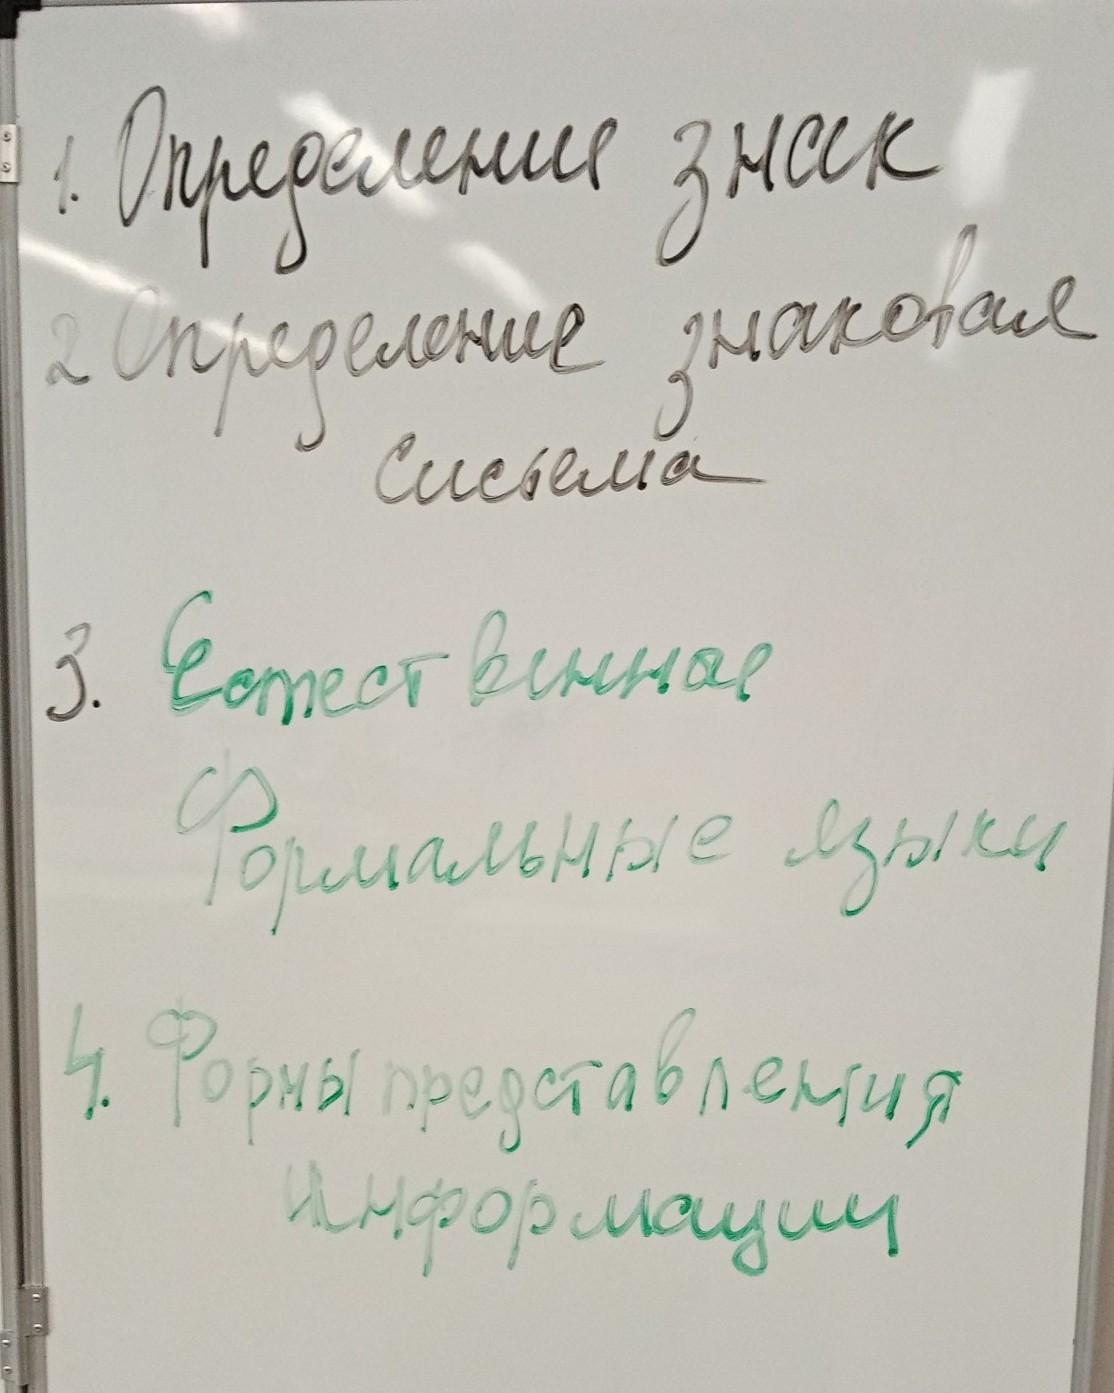 1. Определение знак
2 Определение знаковая
система
3. Естественные
Формальные языки
4. Формы представления
информации